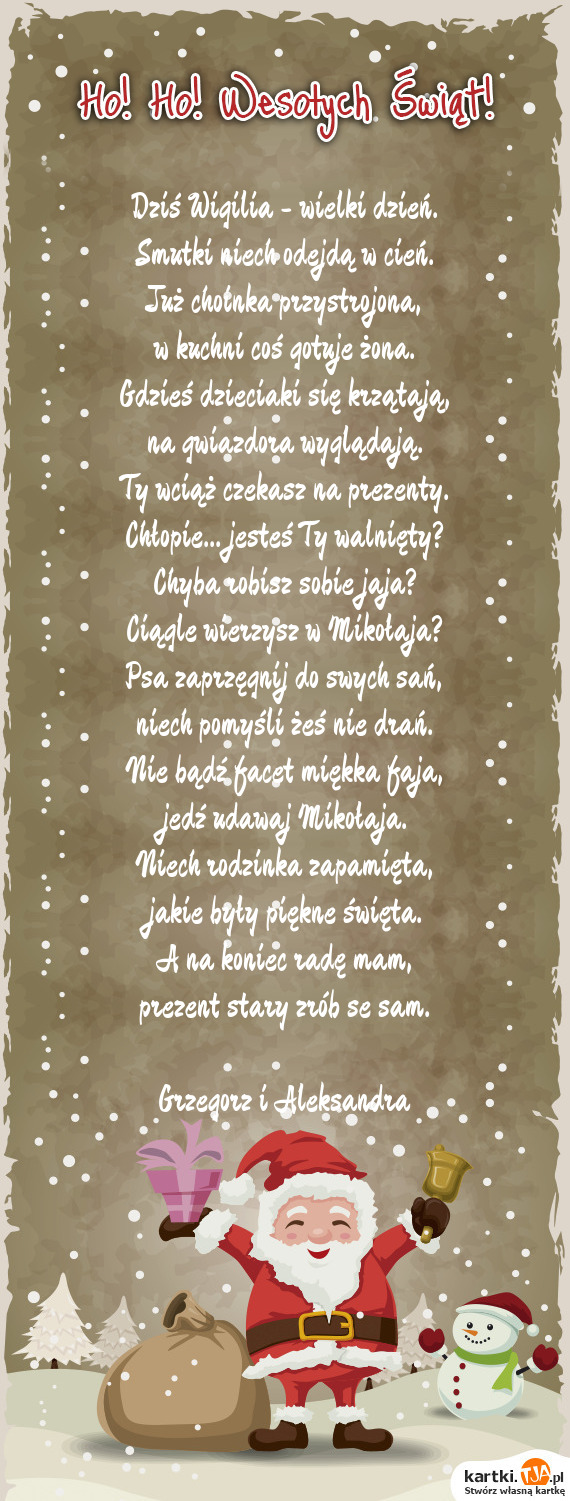 Ho! Ho! Wesołych Świąt!
Dziś Wigilia - wielki dzień.
Smutki niech odejdą w cień.
Już choinka przystrojona,
w kuchni coś gotuje żona.
Gdzieś dzieciaki się krzątają,
na gwiazdora wyglądają.
Ty wciąż czekasz na prezenty.
Chłopie... jesteś Ty walnięty?
Chyba robisz sobie jaja?
Ciągle wierzysz w Mikołaja?
Psa zaprzęgnij do swych sań,
niech pomyśli żeś nie drań.
Nie bądź facet miękka faja,
jedź udawaj Mikołaja.
Niech rodzinka zapamięta,
jakie były piękne święta.
A na koniec radę mam,
prezent stary zrób se sam.
Grzegorz i Aleksandra
kartki.TJA.pl
Stwórz własną kartkę